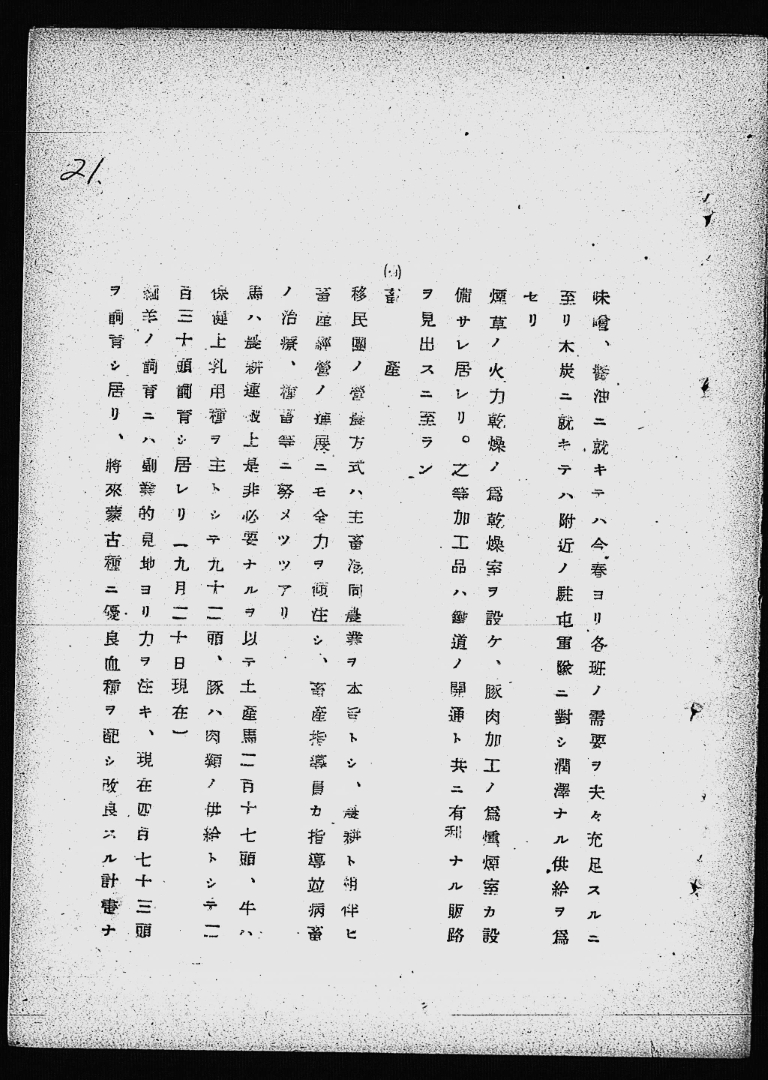 21.
味噌、醬油ニ就キテハ今春ヨリ各班ノ需要ヲ夫々充足スルニ
至リ木炭ニ就キテハ附近ノ駐屯軍隊ニ對シ潤澤ナル供給ヲ爲
セリ
煙草ノ火力乾燥ノ爲乾燥室ヲ設ケ、豚肉加工ノ爲燻煙室カ設
備サレ居レリ。之等加工品ハ鐵道ノ開通ト共ニ有利ナル販路
ヲ見出スニ至ラン
畜產
移民團ノ營農方式ハ主畜混同農業ヲ本旨トシ、農耕ト相伴ヒ
畜產經營ノ進展ニモ全力ヲ傾注シ、畜產指導員カ指導竝病畜
ノ治療、種畜等ニ努メツツアリ
馬ハ農耕運搬上是非必要ナルヲ以テ土產馬二百十七頭、牛ハ
保健上乳用種ヲ主トシテ九十二頭、豚ハ肉類ノ供給トシテ二
百三十頭飼育シ居レリ(九月二十日現在)
緬羊ノ飼育ニハ副業的見地ヨリ力ヲ注キ、現在四百七十三頭
ヲ飼育シ居リ、將來蒙古種ニ優良血種ヲ配シ改良スル計畫ナ